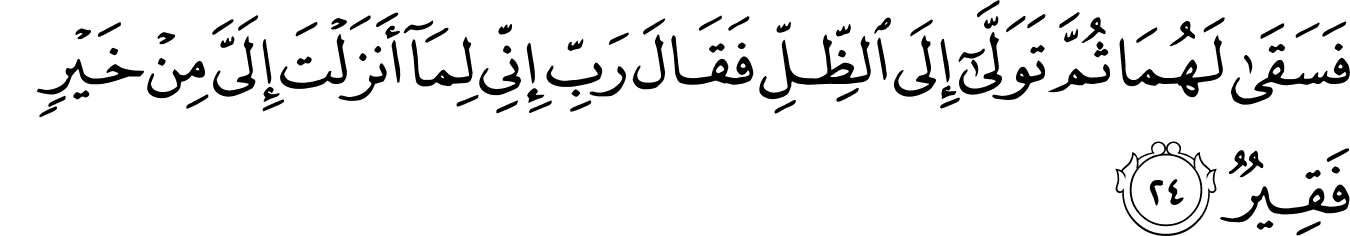 فَسَقَىٰ لَهُمَا ثُمَّ تَوَلَّىٰٓ إِلَى ٱلظِّلِّ فَقَالَ رَبِّ إِنِّى لِمَآ أَنزَلْتَ إِلَىَّ مِنْ خَيْرٍ
فَقِيرٌ ٢٤